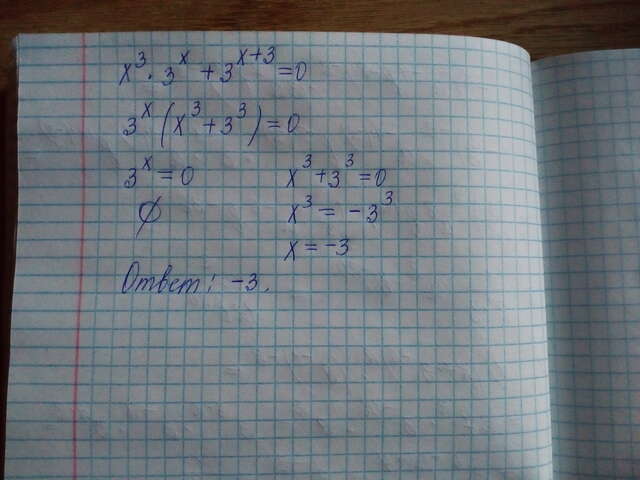 x³ · 3ˣ + 3ˣ⁺³ = 0
3ˣ (x³ + 3³) = 0
3ˣ = 0 x³ + 3³ = 0
∅ x³ = -3³
x = -3
Ответ: -3.